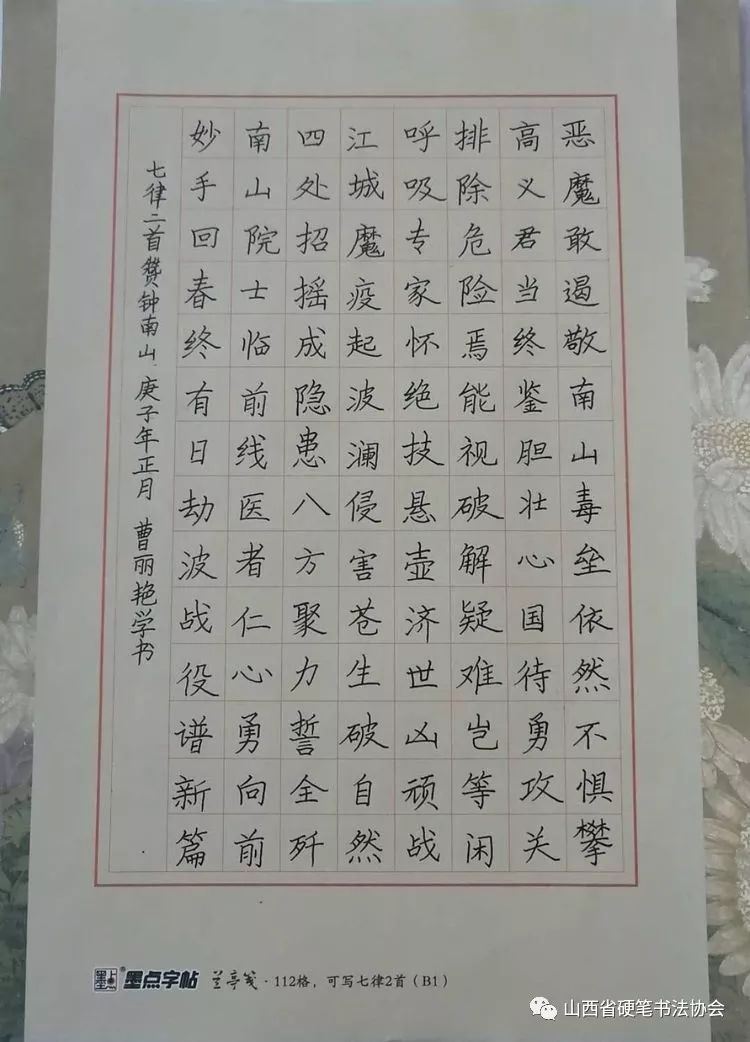 恶魔敢遏敬南山毒垒依然不惧攀
高义君当终鉴胆壮心国待勇攻关
排除危险焉能视破解疑难岂等闲
呼吸专家怀绝技悬壶济世凶顽战
江城魔疫起波澜侵害苍生破自然
四处招摇成隐患八方聚力誓全歼
南山院士临前线医者仁心勇向前
妙手回春终有日劫波战役谱新篇
七律二首赞钟南山.庚子年正月 曹丽艳学书
墨点 ®墨点字帖 兰亭笺·112格，可写七律2首（B1）
山西省硬笔书法协会